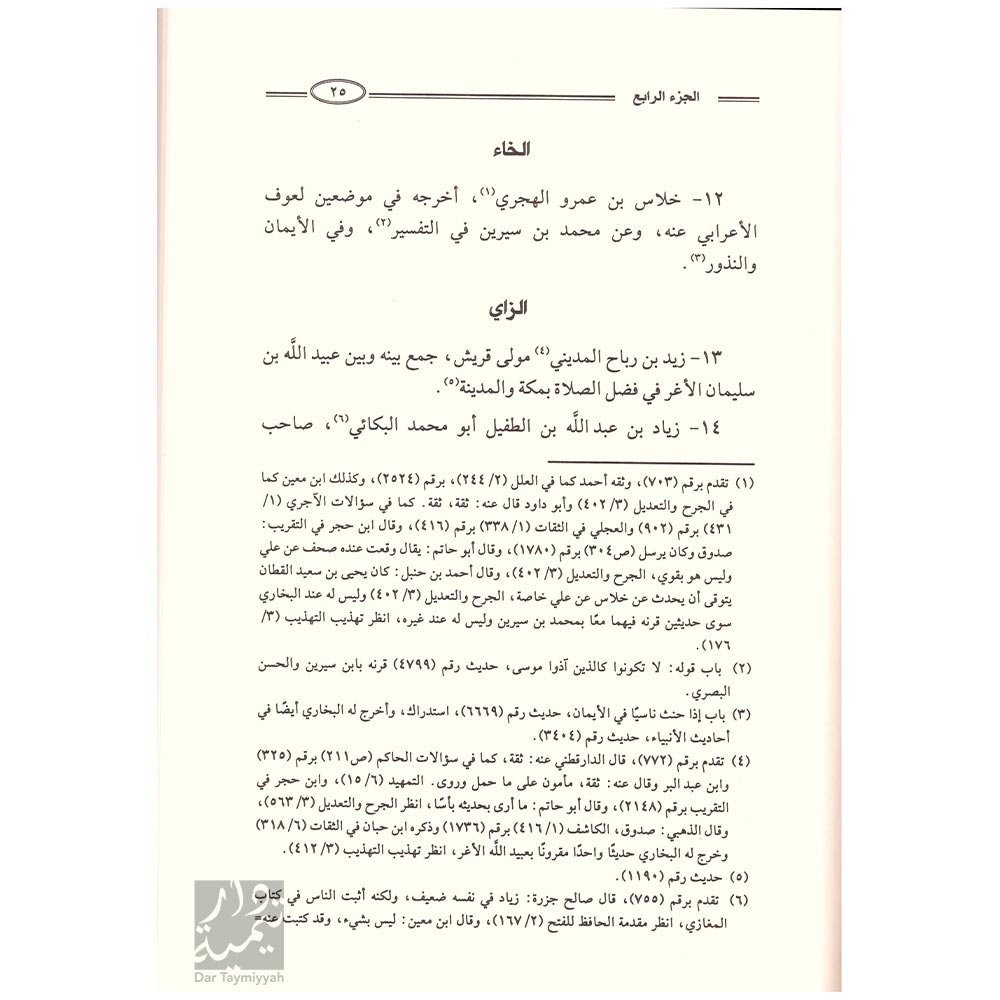 الجزء الرابع
٢٥
الخاء
١٢- خلاس بن عمرو الهجري(١)، أخرجه في موضعين لعوف
الأعرابي عنه، وعن محمد بن سيرين في التفسير(٢)، وفي الأيمان
والنذور(٣).
الزاي
١٣- زيد بن رباح المديني(٤) مولى قريش، جمع بينه وبين عبيد الله بن
سليمان الأغر في فضل الصلاة بمكة والمدينة(٥).
١٤- زياد بن عبد الله بن الطفيل أبو محمد البكائي(٦)، صاحب
(١) تقدم برقم (٧٠٣)، وثقه أحمد كما في العلل (٢/ ٢٤٤)، برقم (٢٥٢٤)، وكذلك ابن معين كما
في الجرح والتعديل (٣/ ٤٠٢) وأبو داود قال عنه: ثقة، ثقة. كما في سؤالات الآجري (١/
٤٣١) برقم (٩٠٢) والعجلي في الثقات (١/ ٣٣٨) برقم (٤١٦)، وقال ابن حجر في التقريب:
صدوق وكان يرسل (ص٣٠٤) برقم (١٧٨٠)، وقال أبو حاتم: يقال وقعت عنده صحف عن علي
وليس هو بقوي، الجرح والتعديل (٣/ ٤٠٢)، وقال أحمد بن حنبل: كان يحيى بن سعيد القطان
يتوقى أن يحدث عن خلاس عن علي خاصة، الجرح والتعديل (٣/ ٤٠٢) وليس له عند البخاري
سوى حديثين قرنه فيهما معًا بمحمد بن سيرين وليس له عند غيره، انظر تهذيب التهذيب (٣/
١٧٦).
(٢) باب قوله: لا تكونوا كالذين آذوا موسى، حديث رقم (٤٧٩٩) قرنه بابن سيرين والحسن
البصري.
(٣) باب إذا حنث ناسيًا في الأيمان، حديث رقم (٦٦٦٩)، استدراك، وأخرج له البخاري أيضًا في
أحاديث الأنبياء، حديث رقم (٣٤٠٤).
(٤) تقدم برقم (٧٧٢)، قال الدارقطني عنه: ثقة، كما في سؤالات الحاكم (ص٢١١) برقم (٣٢٥)
وابن عبد البر وقال عنه: ثقة، مأمون على ما حمل وروى. التمهيد (٦/ ١٥)، وابن حجر في
التقريب برقم (٢١٤٨)، وقال أبو حاتم: ما أرى بحديثه بأسًا، انظر الجرح والتعديل (٣/ ٥٦٣)،
وقال الذهبي: صدوق، الكاشف (١/ ٤١٦) برقم (١٧٣٦) وذكره ابن حبان في الثقات (٦/ ٣١٨)
وخرج له البخاري حديثًا واحدًا مقرونًا بعبيد الله الأغر، انظر تهذيب التهذيب (٣/ ٤١٢).
(٥) حديث رقم (١١٩٠).
(٦) تقدم برقم (٧٥٥)، قال صالح جزرة: زياد في نفسه ضعيف، ولكنه أثبت الناس في كتاب
المغازي، انظر مقدمة الحافظ للفتح (٢/ ١٦٧)، وقال ابن معين: ليس بشيء، وقد كتبت عنه=
دار تيمية
Dar Taymiyyah